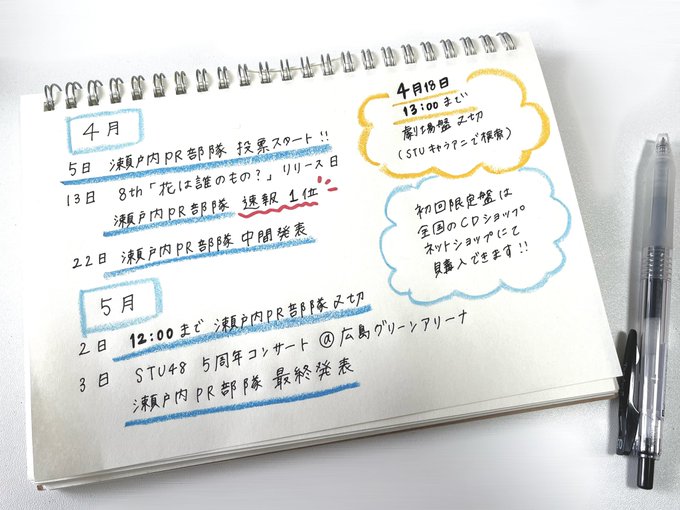 4月
5日 瀬戸内PR部隊 投票スタート!!
13日 8th「花は誰のもの?」リリース日
瀬戸内PR部隊 速報 1位
22日 瀬戸内PR部隊 中間発表
5月
2日 12:00まで 瀬戸内PR部隊〆切
3日 STU48 5周年コンサート@広島グリーンアリーナ
瀬戸内PR部隊 最終発表
4月18日
13:00まで
劇場盤〆切
(STUキャラアニで検索)
初回限定盤は
全国のCDショップ
ネットショップにて
購入できます!!